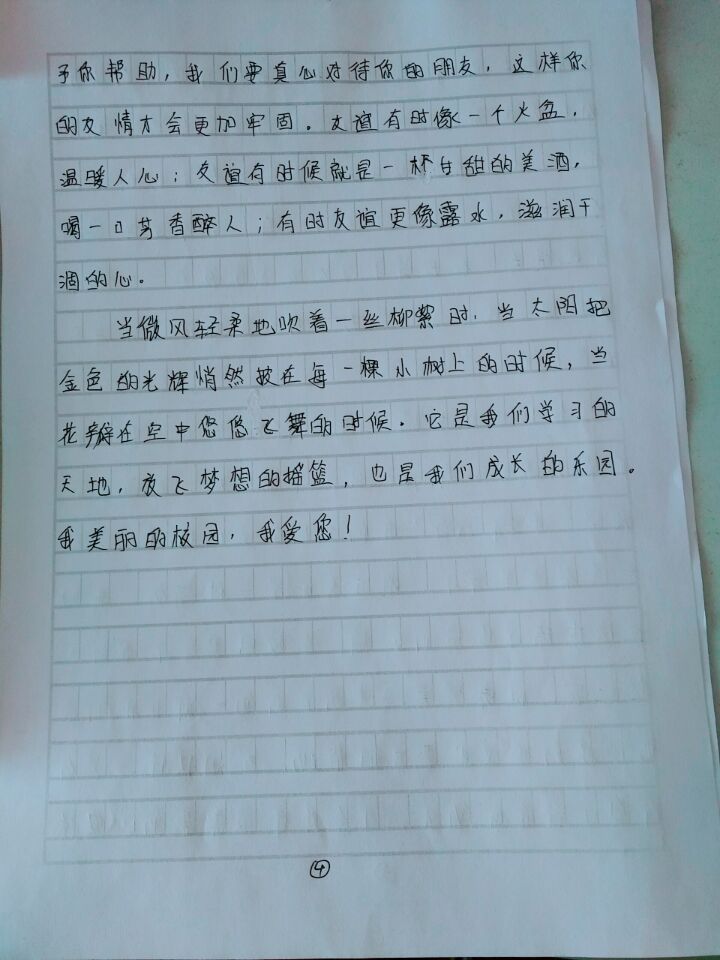 予你帮助，我们要真心对待你的朋友，这样你
的友情才会更加牢固。友谊有时像一个火盆，
温暖人心；友谊有时候就是一杯甘甜的美酒，
喝一口芳香醉人；有时友谊更像露水，滋润干
涸的心。
当微风轻柔地吹着一丝柳絮时，当太阳把
金色的光辉悄然披在每一棵小树上的时候，当
花瓣在空中悠悠飞舞的时候。它是我们学习的
天地，放飞梦想的摇篮，也是我们成长的乐园。
我美丽的校园，我爱您！
④